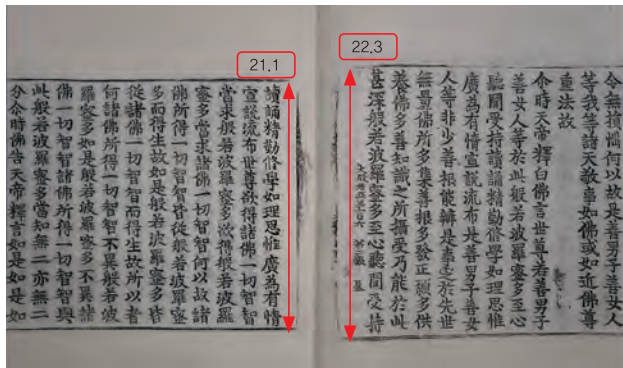 22.3
令無損惱何以故是善男子善女人
等我等諸天敬事如佛或如近佛尊
重法故
尒時天帝釋白佛言世尊若善男子
善女人等於此般若波羅蜜多至心
聽聞受持讀誦精勤修學如理思惟
廣為有情宣說流布是善男子善女
人等非少善根能辦是事定於先世
無量佛所多集善根多發正願多供
養佛多善知識之所攝受乃能於此
甚深般若波羅蜜多至心聽聞受持
21.1
讀誦精勤修學如理思惟廣為有情
宣說流布世尊欲得諸佛一切智智
當求般若波羅蜜多欲得般若波羅
蜜多當求諸佛一切智智何以故諸
佛所得一切智智皆從般若波羅蜜
多而得生故如是般若波羅蜜多皆
從諸佛一切智智而得生故所以者
何諸佛所得一切智智不異般若波
羅蜜多如是般若波羅蜜多不異諸
佛一切智智諸佛所得一切智智與
此般若波羅蜜多當知無二亦無二
分尒時佛告天帝釋言如是如是如